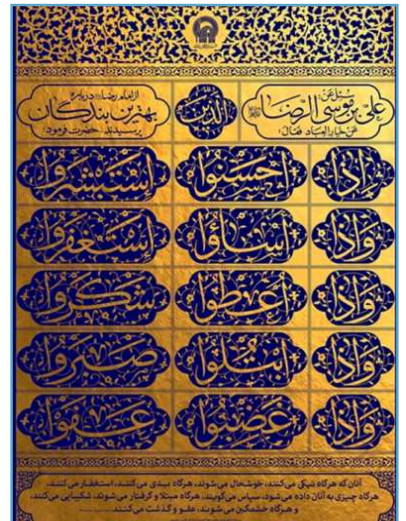 سُئِلَ عَن
علی بن موسی الرضا
عَن خیار العباد فقال:
الذین
از امام رضا درباره
بهترین بندگان
پرسیدند، حضرت فرمود:
وَاِذا اَحسَنُوا اِستَبشَرُوا
وَاِذا اَساؤُا اِستَغفَرُوا
وَاِذا اُعطُوا شَکَرُوا
وَاِذا ابتُلُوا صَبَرُوا
وَاِذا غَضِبُوا عَفَوا
آنان که هرگاه نیکی می‌کنند، خوشحال می‌شوند، هرگاه بدی می‌کنند، استغفار می‌کنند،
هرگاه چیزی به آنان داده می‌شود، سپاس می‌گویند، هرگاه مبتلا و گرفتار می‌شوند، شکیبایی می‌کنند،
و هرگاه خشمگین می‌شوند، عفو و گذشت می‌کنند